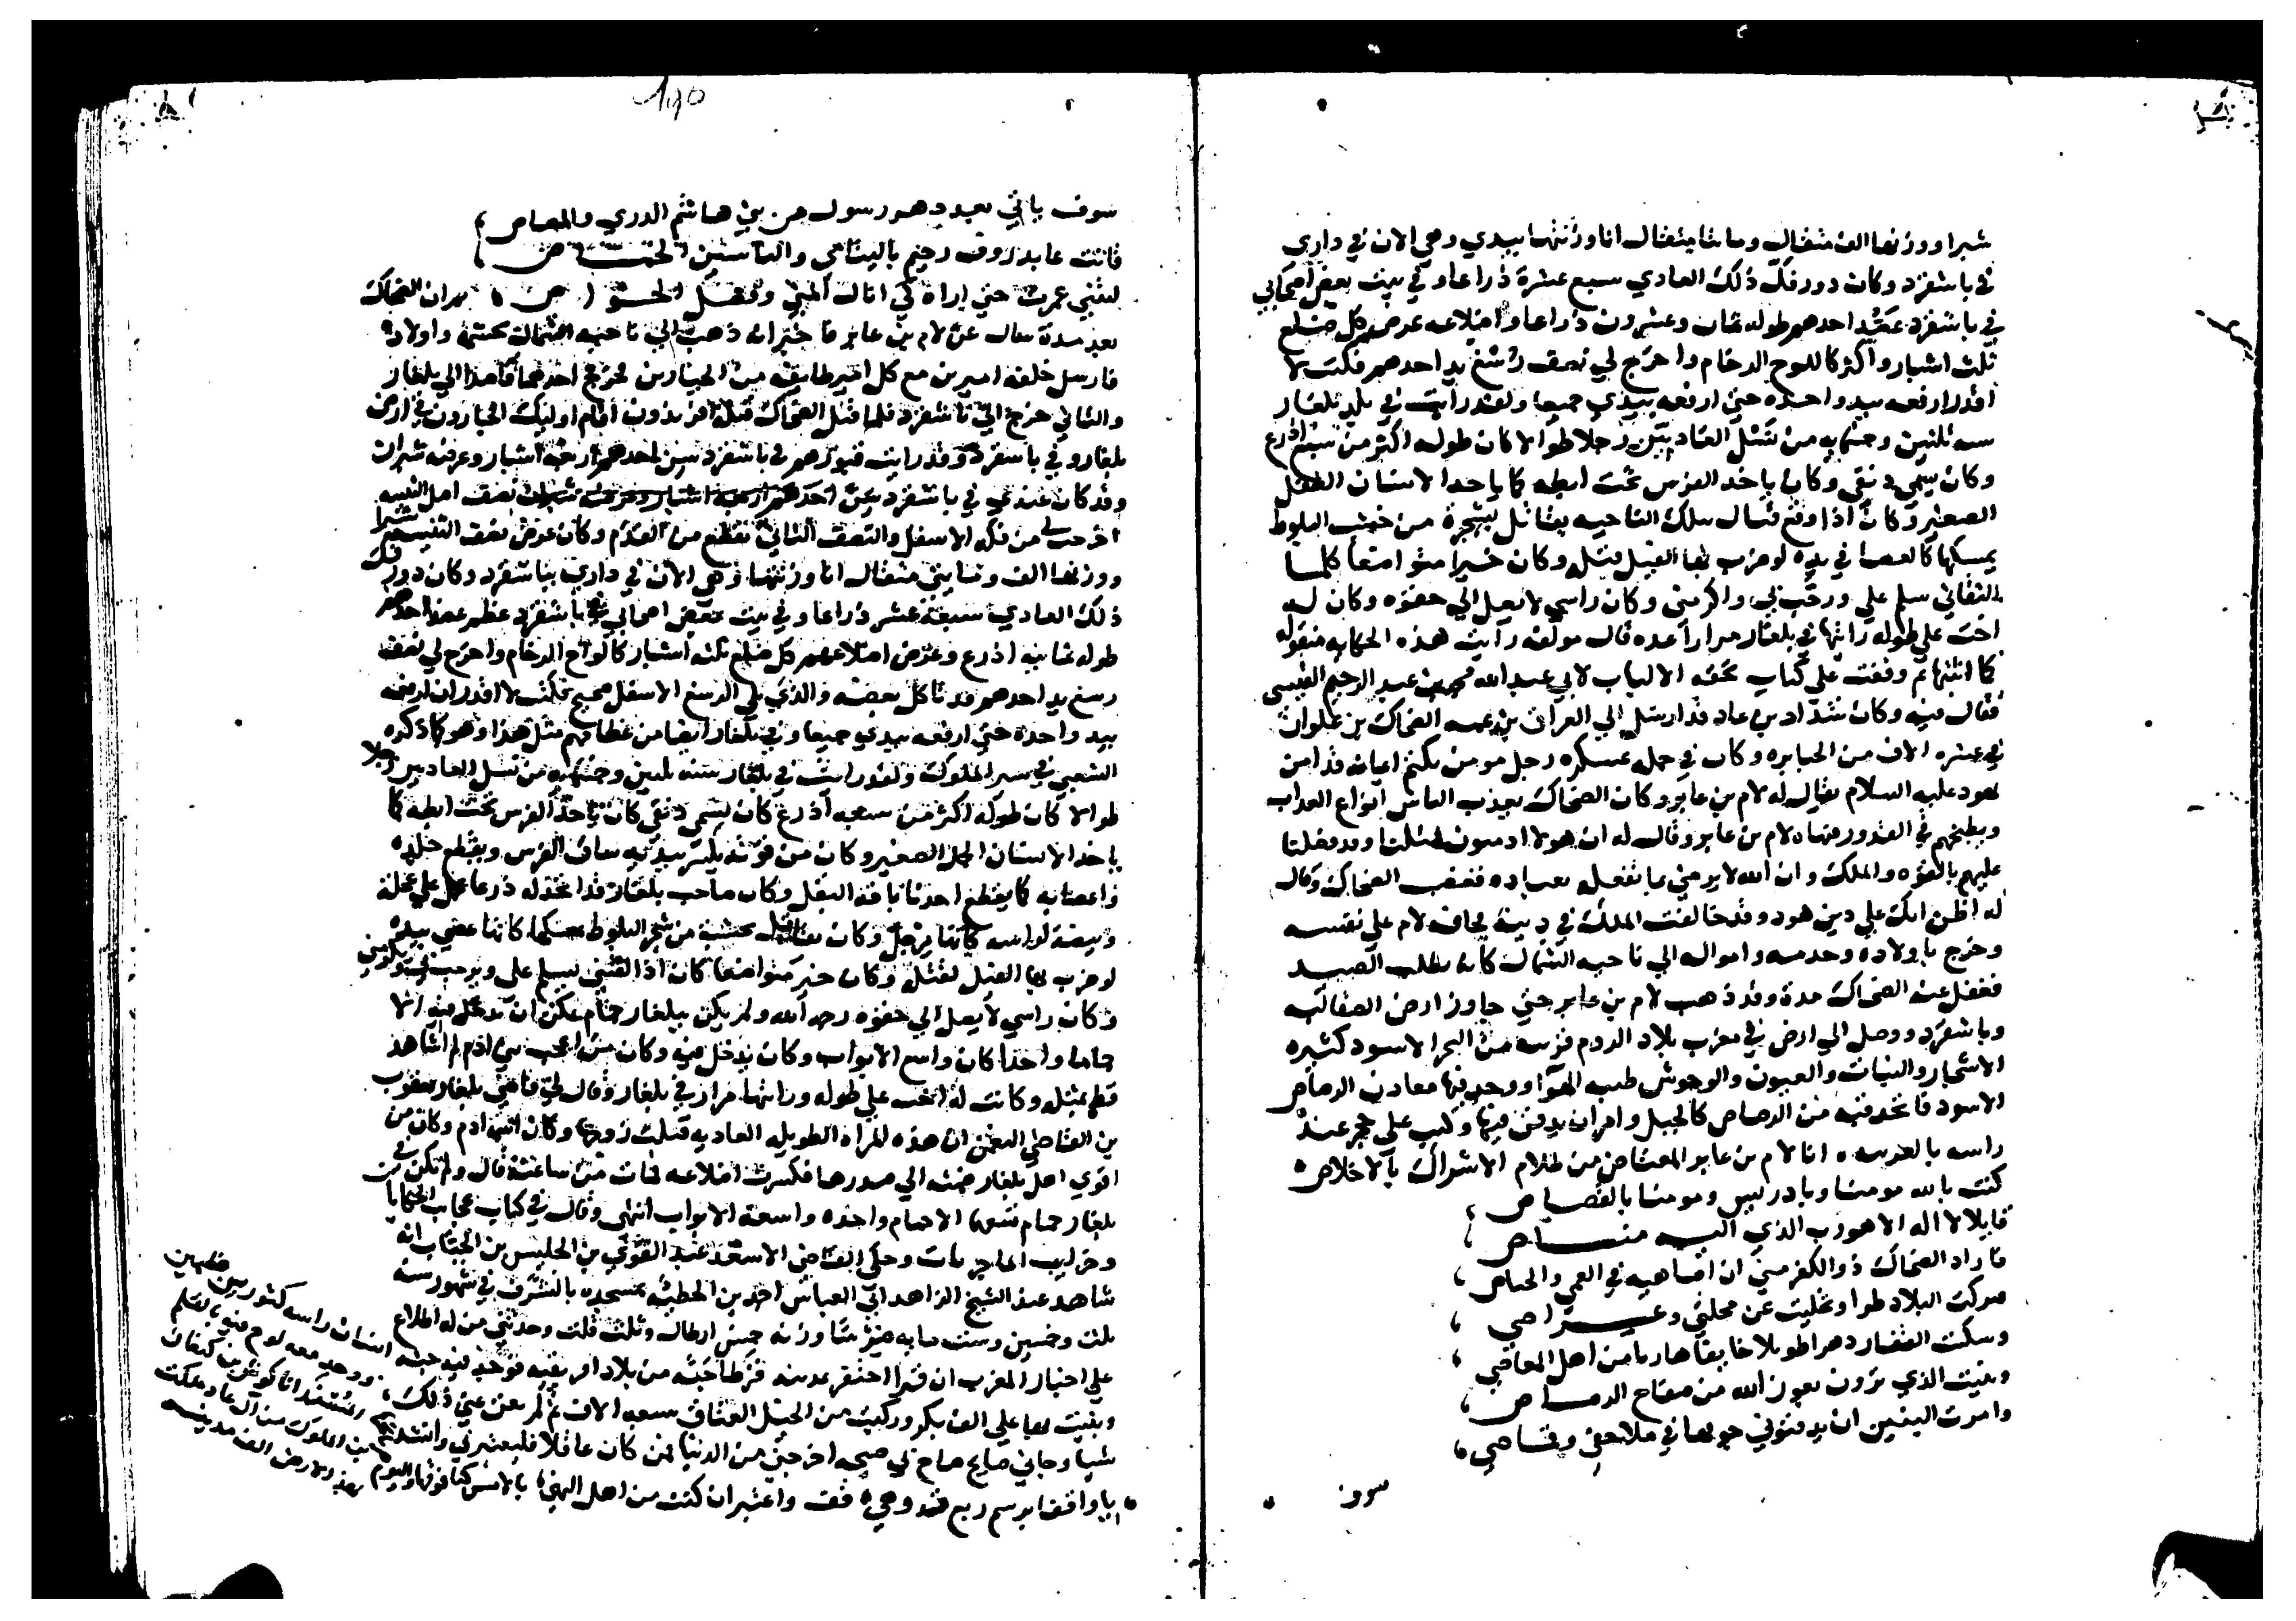 شبرا ووزنها الف مثقال ومائتا مثقال انا وزنتها بيدي وهي الان في داري
في باشغرد وكان دور فك ذلك العادي سبع عشرة ذراعا وفي بيت بعض اصحابي
في باشغرد عضد احدهم طوله ثمان وعشرون ذراعا واضلاعه عرض كل ضلع
ثلث اشبار واكثر كاللوح الرخام واخرج لي نصف رسغ يد احدهم فكنت لا
اقدر ارفعه بيد واحدة حتى ارفعه بيدي جميعا ولقد رايت في بلد بلغار
سنه ثلثين وخمسمايه من نسل العاديين رجلا طوالا كان طوله اكثر من سبع اذرع
وكان يسمى دنقي وكان ياخذ الفرس تحت ابطه كما ياخذ الانسان الطفل
الصغير وكان اذا وقع قتال بتلك الناحيه يقاتل بشجرة من خشب البلوط
يمسكها كالعصا في يده لو ضرب بها الفيل لقتله وكان خيرا متواضعا كلما
التقاني سلم علي ورحب بي واكرمني وكان راسي لا يصل الى حقوه وكان له
اخت على طوله رايتها في بلغار مرارا عده قال مولفه رايت هذه الحكايه منقوله
كما اثبتها ثم وقفت على كتاب تحفه الالباب لابي عبد الله محمد بن عبد الرحيم القيسي
فقال فيه وكان شداد بن عاد قد ارسل الي العراق بن عمه الضحاك بن علوان
في عشره الاف من الجبابره وكان في جمله عسكره رجل مومن يكتم ايمانه قد امن
بهود عليه السلام يقال له لام بن عابر وكان الضحاك يعذب الناس انواع العذاب
ويطبخهم في القدور فنهاه لام بن عابر وقال له ان هولا ادميون مثلنا وقد فضلنا
عليهم بالقوه والملك وان الله لا يرضي بما تفعل بعباده فغضب الضحاك وقال
له اظن انك علي دين هود وقد خالفت الملك في دينه فخاف لام علي نفسه
وخرج باولاده وخدمه وامواله الي ناحيه الشمال كانه يطلب الصيد
فغفل عنه الضحاك مدة وقد ذهب لام بن عابر حتي جاوز ارض الصقالبه
وباشغرد ووصل الي ارض في مغرب بلاد الروم قريبه من البحر الاسود كثيره
الاشجار والنبات والعيون والوحوش طيبه الهوا ووجد بها معادن الرصاص
الاسود فاتخذ قبه من الرصاص كالجبل وامر ان يدفن فيها وكتب علي حجر عند
راسه بالعربيه انا لام بن عابر المعتاض من ظلام الاشراك بالاخلاص
كنت بالله مومنا وبادريس ومومنا بالقصاص
قايلا لا اله الا هو رب الذي اليه مناص
فاراد الضحاك ذو الكفر مني ان اضاهيه في العمي والمعاص
فتركت البلاد طرا وتخليت عن محلتي وعراصي
وسكنت القفار دهرا طويلا خايفا هاربا من اهل المعاصي
وبنيت الذي ترون بعون الله من صفاح الرصاص
وامرت البنين ان يدفنوني جوفها في ملاحفي وقماصي
سوف
سوف ياتي بعد دهر رسول من بني هاشم الدري والمصاص
فانت عابد روف رحيم باليتامي والبائسين
ليتني عمرت حتي اراه
بعد مدة سال عن لام بن عابر فاخبر انه ذهب الي ناحيه الشمال بحشمه واولاده
فارسل خلفه اميرين مع كل امير طايفه من الجبارين فخرج احدهما قاصدا الي بلغار
والثاني خرج الي باشغرد فلما قتل الضحاك قتله افريدون اقام اوليك الجبارون في ارض
بلغار وفي باشغرد وقد رايت قبورهم في باشغرد سن احدهم اربعه اشبار وعرضه شبران
وقد كان عندي في باشغرد نصف اصل الثنيه
اخرجت لي من فكه الاسفل والنصف الثاني تقطع من القدم وكان عرض نصف الثنيه شبرا
ووزنها الف ومايتي مثقال انا وزنتها وهي الان في داري بباشغرد وكان دور فك
ذلك العادي سبعة عشر ذراعا وفي بيت بعض اصحابي في باشغرد عظم عضد احدهم
طوله ثمانيه اذرع وعرض اضلاعهم كل ضلع ثلثه اشبار كالواح الرخام واخرج لي نصف
رسغ يد احدهم قد تاكل بعضه والذي يلي الرسغ الاسفل صحيح فكنت لا اقدر ان ارفعه
بيد واحدة حتي ارفعه بيدي جميعا وفي بلغار ايضا من عظامهم مثل هذا وهو كما ذكره
الشعبي في سير الملوك ولقد رايت في بلغار سنه ثلثين وخمسمايه من نسل العاديين رجلا
طوالا كان طوله اكثر من سبعه اذرع كان يسمى دنقي كان ياخذ الفرس تحت ابطه كما
ياخذ الانسان الحمل الصغير وكان من قوته يكسر بيديه ساق الفرس ويقطع جلده
واعصابه كما يقطع احدنا باقة البقل وكان صاحب بلغار قد اتخذ له درعا تحمل علي عجلة
وبيضة لراسه كانها مرجل وكان يقاتل بخشبه من شجر البلوط يمسكها كانها عصي بيده
لو ضرب بها الفيل لقتله وكان خيرا متواضعا كان اذا لقيني يسلم علي ويرحب بي ويكرمني
وكان راسي لا يصل الي حقوه رحمه الله ولم يكن ببلغار حمام يمكن ان يدخل فيه الا
حماما واحدا كان واسع الابواب وكان يدخل فيه وكان من اعجب بني ادم لم اشاهد
قط مثله وكانت له اخت علي طوله ورايتها مرارا في بلغار وقال لي قاضي بلغار يعقوب
بن القاضي النعمن ان هذه المراه الطويله العاديه قتلت زوجها وكان اسمه ادم وكان من
اقوي اهل بلغار ضمته الي صدرها فكسرت اضلاعه فمات من ساعته قال ولم يكن في
بلغار حمام تسعها الا حمام واحده واسعة الابواب انتهى وقال في كتاب عجايب الحكايات
وغرايب الماجريات وحكي القاضي الاسعد عبد القوي بن الجليس بن الجباب انه
شاهد عند الشيخ الزاهد ابي العباس احمد بن الحطيئه بمسجده بالشرف في شهور سنه
ثلث وخمسين وست مايه ضرسا وزنه خمس ارطال وثلث قلت وحدثني من له اطلاع
علي اخبار المغرب ان قبرا احتفر بمدينه قرطاجنه من بلاد افريقيه فوجد فيه جثه انسان راسه كثورين عظيمين
ووجد معه لوح فيه بقلم المسند انا كوش بن كنعان
بن الملوك من آل عاد ملكت
بهذه الارض الف مدينه
وبنيت بها علي الف بكر وركبت من الخيل العتاق سبعه الاف ثم لم يغن عني ذلك
شيا وجاني صايح صاح بي صيحه اخرجتني من الدنيا فمن كان عاقلا فليعتبر بي وانشد
يا واقفا برسم ربع قد وهي قف واعتبر ان كنت من اهل النهي بالامس كنا فوقها واليوم